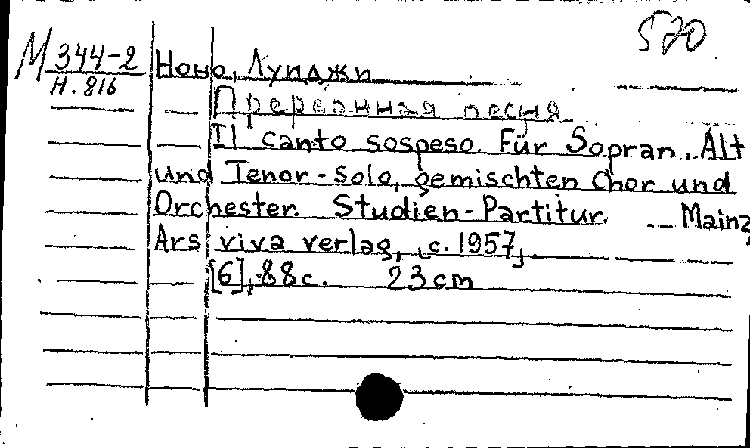 570
М 344-2
Н. 816
Ноно, Луиджи
Прерванная песня
Il canto sospeso. Für Sopran-, Alt
und Tenor-Solo, gemischten Chor und
Orchester. Studien-Partitur. Mainz,
Ars viva verlag, [c. 1957]
[6], 88 с. 23 cm